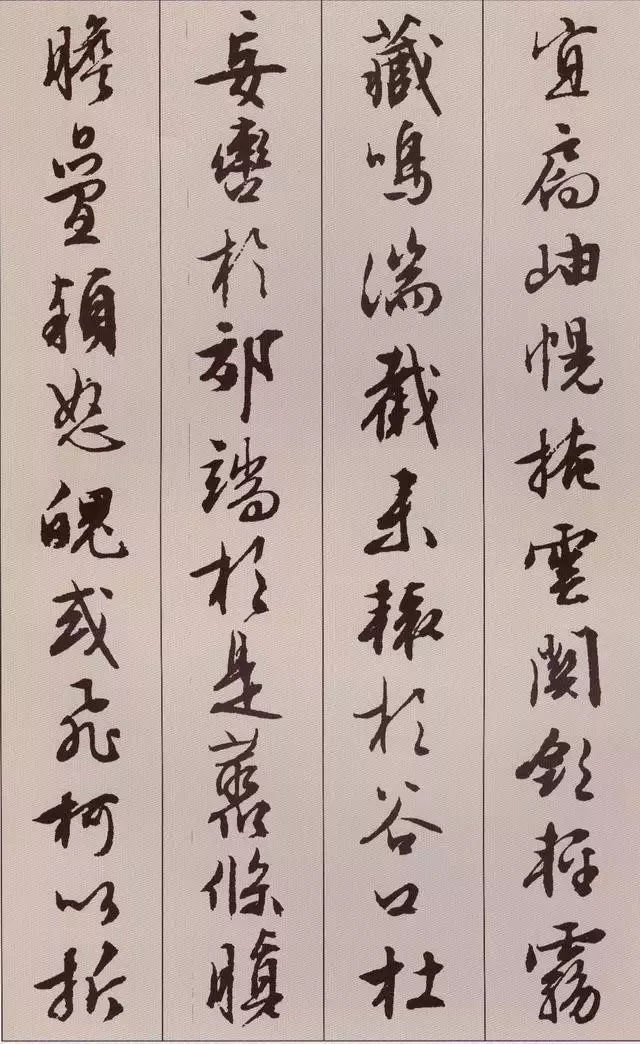 宜扃岫幌掩雲關斂輕霧
藏鳴湍截来轅於谷口杜
妄轡於郊端於是藂條瞋
膽疊穎怒魄或飛柯以折